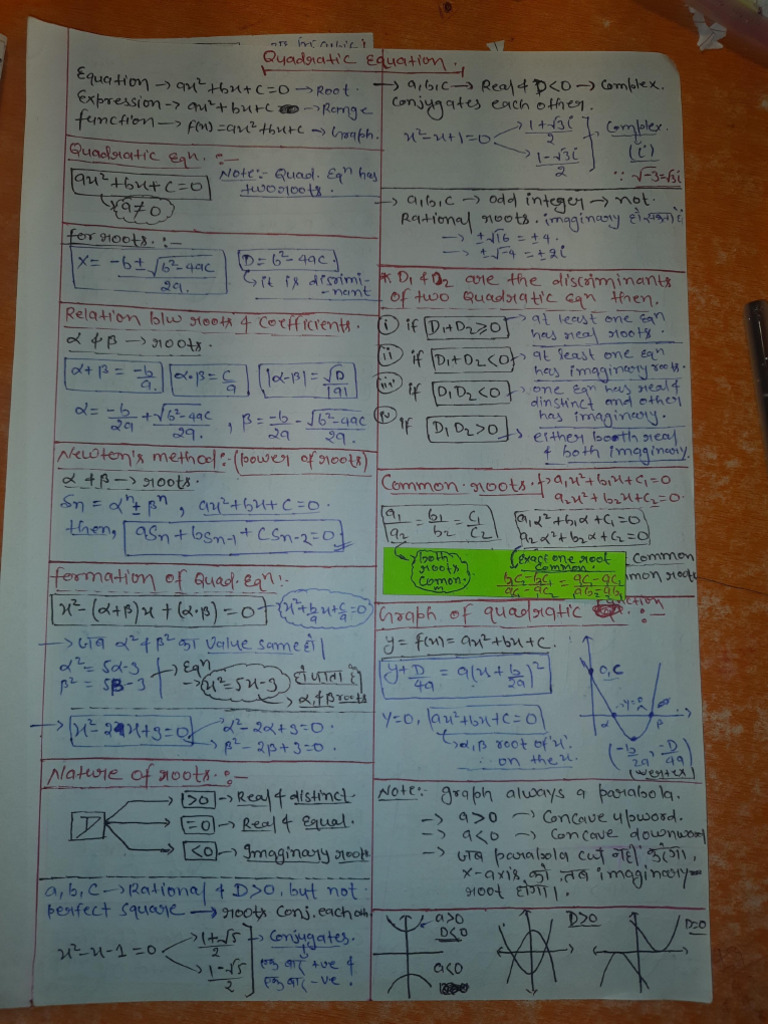 Quadratic Equation.
Equation → ax²+bx+c=0 → Root
Expression → ax²+bx+c → Range
function → f(x)=ax²+bx+c → Graph.
Quadratic Eqn. :-
ax²+bx+c=0
* a≠0
Note:- Quad. Eqn has
two roots.
for roots. :-
x= -b±√b²-4ac / 2a.
D=b²-4ac.
it is discrimi-
-nant
Relation b/w roots & coefficients.
α & β → roots.
α+β = -b/a
α·β = c/a
|α-β| = √D/|a|
α= -b/2a + √b²-4ac/2a. , β= -b/2a - √b²-4ac/2a.
Newton's method:- (power of roots)
α & β → roots.
Sn = αⁿ±βⁿ , ax²+bx+c=0.
then, aSn+bSn-1+cSn-2=0
formation of Quad. Eqn:-
x²-(α+β)x+(α·β)=0
x²+b/a x+c/a=0
→ जब α² & β² का value same हो।
α²=5α-3
β²=5β-3
Eqn
→ x²=5x-3
हो जाता है
α, & β roots
→ x²-2x+3=0
α²-2α+3=0.
β²-2β+3=0.
Nature of roots. :-
D
>0 → Real & distinct.
=0 → Real & Equal.
<0 → Imaginary roots
a,b,c → Rational & D>0, but not
perfect square → roots conj. each oth
x²-x-1=0
1+√5/2
1-√5/2
Conjugates.
एक बार +ve &
एक बार -ve.
→ a,b,c → Real & D<0 → Complex.
conjugates each other.
x²-x+1=0
1+√3i/2
1-√3i/2
Complex.
(i)
∵ √-3=√3i
→ a,b,c, → odd integer → not
Rational roots. imaginary हो
→ ±√16 = ±4.
→ ±√-4 = ±2i
* D1 & D2 are the discriminants
of two Quadratic Eqn then.
(i) if D1+D2≥0 → at least one Eqn
has real roots.
(ii) if D1+D2<0 → at least one Eqn
has imaginary roots.
(iii) if D1D2<0 → one Eqn has real &
dinstinct and others
has imaginary.
(iv) if D1D2>0 → either booth real
& both imaginary.
Common roots. :- a1x²+b1x+c1=0
a2x²+b2x+c2=0.
a1/a2 = b1/b2 = c1/c2
a1α²+b1α+c1=0
a2α²+b2α+c2=0
both
roots
common.
Exact one root
common.
Common
Graph of quadratic function :-
y=f(x)=ax²+bx+c.
y+D/4a = a(x+b/2a)²
y=0, ax²+bx+c=0
α,β root of x.
∴ on the x.
0,C
y=0
α
β
(-b/2a, -D/4a)
(vertex)
Note:- graph always a parabola.
→ a>0 → Concave upword.
→ a<0 → Concave downword
→ जब parabola cut नहीं करेगा,
x-axis को तब imaginary
root होगा।
a>0
D<0
a<0
D>0
D=0